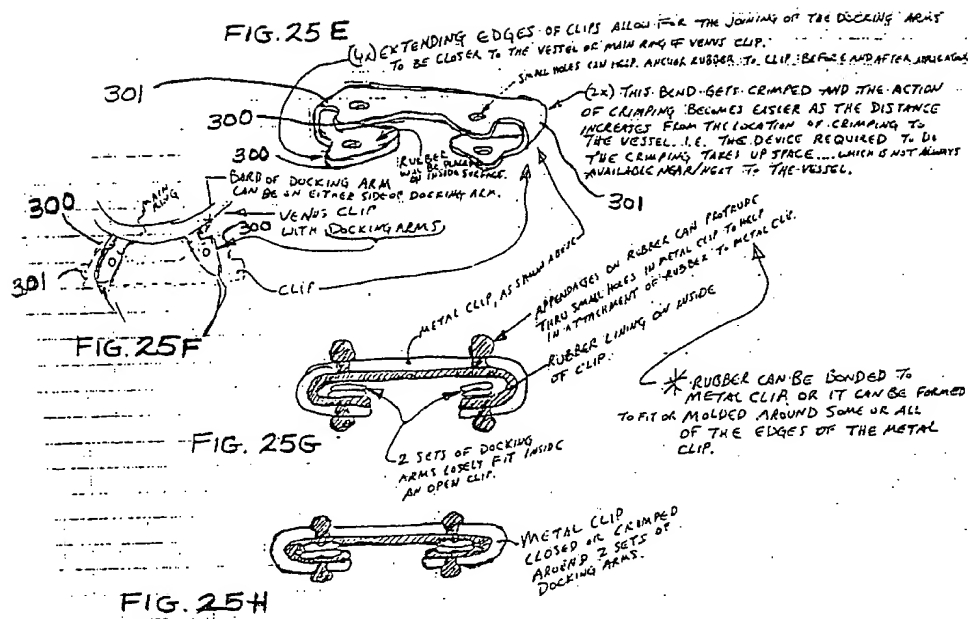 FIG. 25 E
(4x) EXTENDING EDGES OF CLIPS ALLOW FOR THE JOINING OF THE DOCKING ARMS
TO BE CLOSER TO THE VESSEL OR MAIN RING OF VENUS CLIP.
SMALL HOLES CAN HELP ANCHOR RUBBER TO CLIP BEFORE AND AFTER APPLICATION
301
300
300
RUBBER
WILL BE PLACED
ON INSIDE SURFACE.
(2x) THIS BEND GETS CRIMPED AND THE ACTION
OF CRIMPING BECOMES EASIER AS THE DISTANCE
INCREASES FROM THE LOCATION OF CRIMPING TO
THE VESSEL. I.E. THE DEVICE REQUIRED TO DO
THE CRIMPING TAKES UP SPACE.... WHICH IS NOT ALWAYS
AVAILABLE NEAR/NEXT TO THE VESSEL.
301
BARB OF DOCKING ARM
CAN BE ON EITHER SIDE OF DOCKING ARM.
MAIN
RING
300
VENUS CLIP
300 WITH DOCKING ARMS
301
CLIP
FIG. 25F
METAL CLIP, AS SHOWN ABOVE
APPENDAGES ON RUBBER CAN PROTRUDE
THRU SMALL HOLES IN METAL CLIP TO HELP
IN ATTACHMENT OF RUBBER TO METAL CLIP.
RUBBER LINING ON INSIDE
OF CLIP.
FIG. 25G
2 SETS OF DOCKING
ARMS LOSELY FIT INSIDE
AN OPEN CLIP.
* RUBBER CAN BE BONDED TO
METAL CLIP OR IT CAN BE FORMED
TO FIT OR MOLDED AROUND SOME OR ALL
OF THE EDGES OF THE METAL
CLIP.
METAL CLIP
CLOSED OR CRIMPED
AROUND 2 SETS OF
DOCKING ARMS.
FIG. 25H